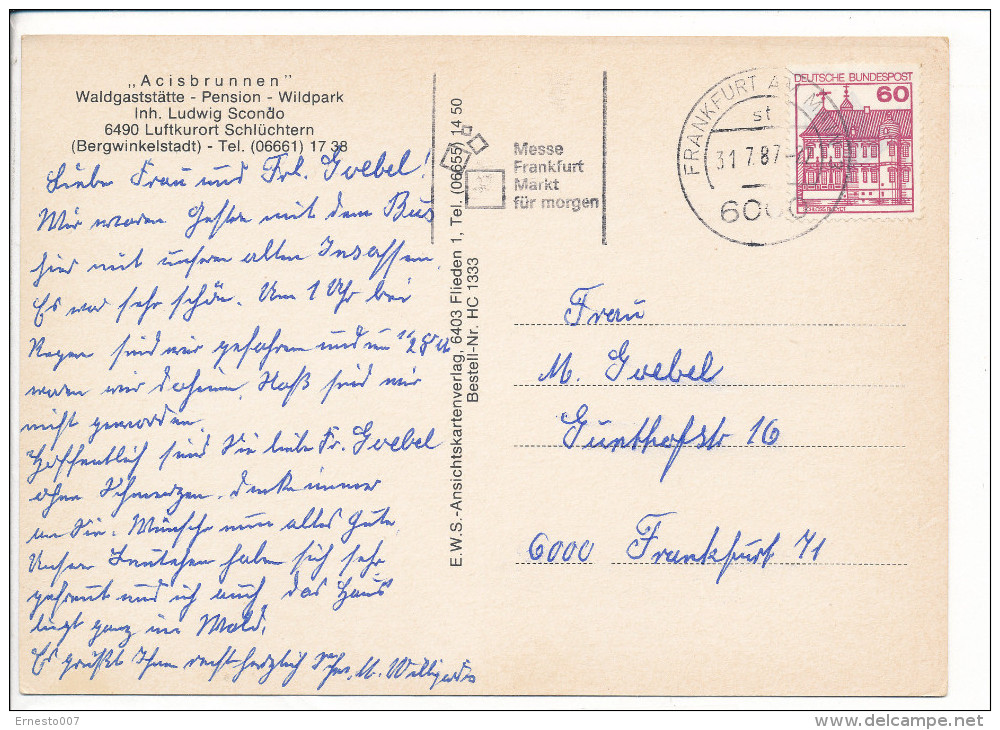 „Acisbrunnen"
Waldgaststätte - Pension - Wildpark
Inh. Ludwig Scondo
6490 Luftkurort Schlüchtern
(Bergwinkelstadt) - Tel. (06661) 17 38
Liebe Frau und Frl. Goebel!
Wir waren Gestern mit dem Bus
hier mit unsern alten Insassen.
Es war sehr schön. Um 1 Uhr bei
Regen sind wir gefahren und um 1/2 8 U
waren wir daheim. Naß sind wir
nicht geworden.
Hoffentlich sind Sie liebe Fr. Goebel
ohne Schmerzen. denke immer
an Sie. Wünsche nun alles Gute.
Unsere Leutchen haben sich sehr
gefreut und ich auch das Haus
liegt ganz im Wald.
Es grüßt Ihnen recht herzlich M.
E.W.S.-Ansichtskartenverlag, 6403 Flieden 1, Tel. (06655) 14 50
Bestell-Nr. HC 1333
Messe
Frankfurt
Markt
für morgen
FRANKFURT AM M
st
31.7.87
6000
DEUTSCHE BUNDESPOST
60
Frau
M. Goebel
Gunthofstr 16
6000 Frankfurt 71
Ernesto007
delcampe.net